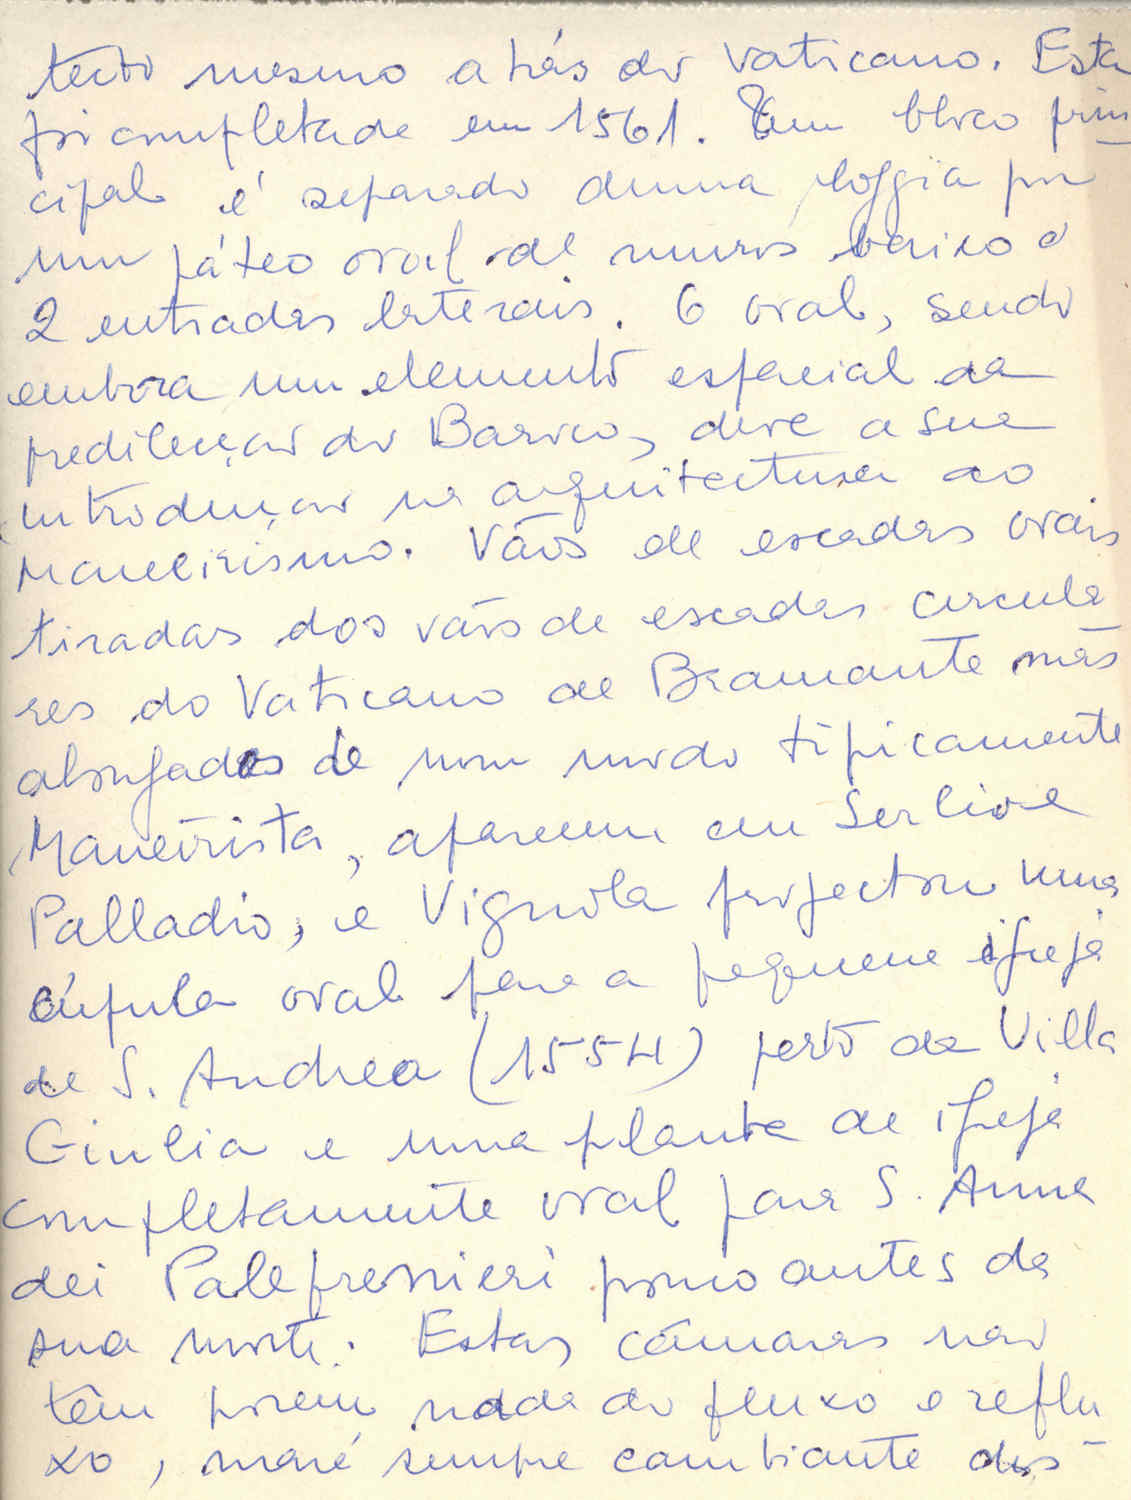 tecto mesmo atrás do Vaticano. Esta
foi completada em 1561. Um bloco prin-
cipal é separado duma loggia por
um páteo oval de muros baixo e
2 entradas laterais. O oval, sendo
embora um elemento espacial da
predilecção do Barroco, deve a sua
introdução na arquitectura ao
Maneirismo. Vãos de escadas ovais
tiradas dos vãos de escadas circula
res do Vaticano de Bramante mas
alongados de um modo tipicamente
Maneirista, aparecem em Serlio e
Palladio, e Vignola projectou uma
cúpula oval para a pequena igreja
de S. Andrea (1554) perto da Villa
Giulia e uma planta de igreja
completamente oval para S. Anna
dei Palefrenieri pouco antes da
sua morte. Estas câmaras não
têm porem nada do fluxo e reflu
xo, maré sempre cambiante dos